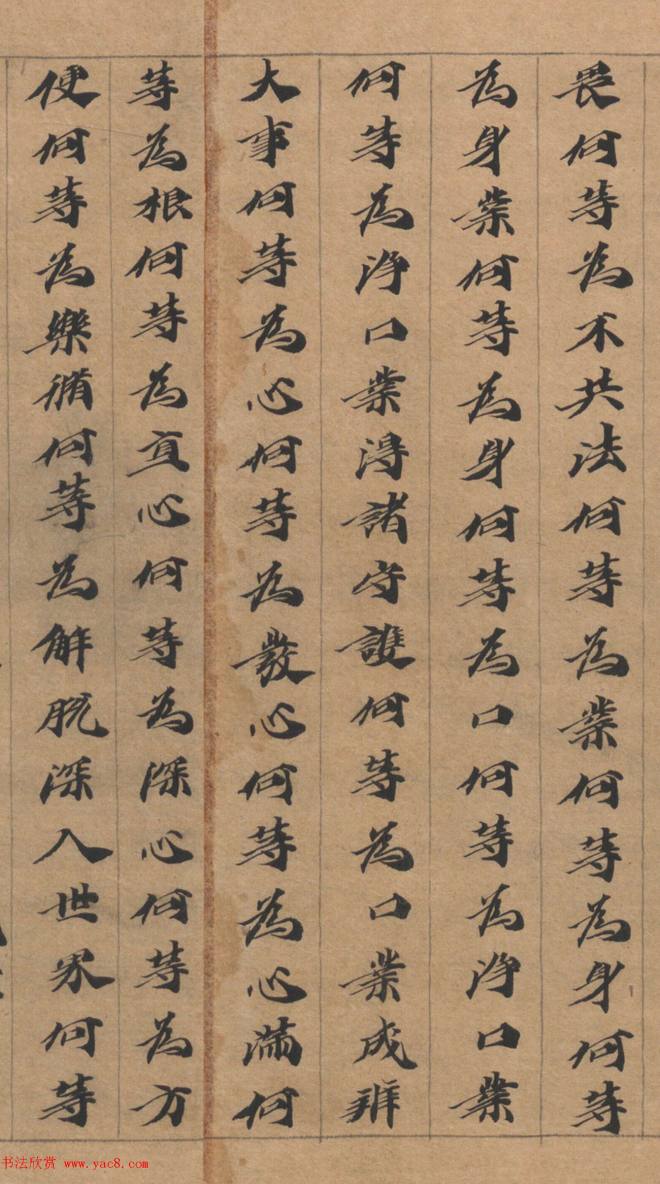 畏何等為不共法何等為業何等為身何等
為身業何等為身何等為口何等為淨口業
何等為淨口業得諸守護何等為口業成辦
大事何等為心何等為發心何等為心滿何
等為根何等為直心何等為深心何等為方
便何等為樂脩何等為解脫深入世界何等
书法欣赏 www.yac8.com